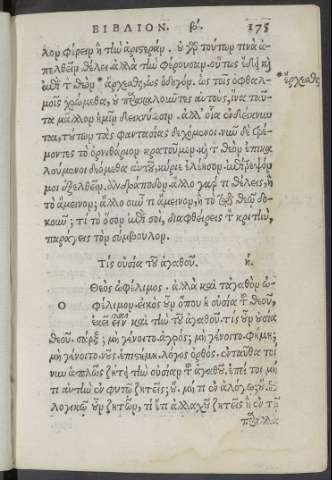 ΒΙΒΛΙΟΝ. β. 175
λον φέρειν ἢ τὴν ἀριστεράν. οὐ γὰρ τούτων τινὰ ἀ-
πελθεῖν θέλει ἀλλὰ τὴν φέρουσαν. οὕτως ἔδει καὶ
ἐπὶ τὸν θεὸν * ἄρχεσθαι, ὡς ὁδηγόν. ὡς τοῖς ὀφθαλ-
* ἔρχεσθαι
μοῖς χρώμεθα, οὐ παρακαλοῦντες αὐτοὺς, ἵνα ταῦ-
τα μᾶλλον ἡμῖν δεικνύωσιν. ἀλλ' οἷα ἐνδείκνυν-
ται, τούτων τὰς φαντασίας δεχόμενοι. νῦν δὲ τρέ-
μοντες τὸ ὀρνιθάριον κρατοῦμεν. καὶ τὸν θεὸν ἐπικα
λούμενοι δεόμεθα αὐτοῦ, κύριε ἐλέησον. ἐπίτρεψόν
μοι ἐξελθεῖν. ἀνδράποδον. ἄλλο γάρ τι θέλεις, ἢ
τὸ ἄμεινον; ἄλλο οὖν τι ἄμεινον, ἢ τὸ τῷ θεῷ δο-
κοῦν; τί τὸ ὅσον ἐπὶ σοὶ, διαφθείρεις τὸν κριτὴν,
παράγεις τὸν σύμβουλον.
Τίς οὐσία τοῦ ἀγαθοῦ. η.
Ο Θεὸς ὠφέλιμος. ἀλλὰ καὶ τἀγαθὸν ὠ-
φέλιμον. εἰκὸς οὖν ὅπου ἡ οὐσία τοῦ θεοῦ,
ἐκεῖ εἶναι καὶ τὴν τοῦ ἀγαθοῦ. τίς οὖν οὐσία
θεοῦ. σάρξ; μὴ γένοιτο. ἀγρός; μὴ γένοιτο. φήμη;
μὴ γένοιτο. νοῦς. ἐπιστήμη. λόγος ὀρθός. ἐνταῦθα τοί
νυν ἁπλῶς ζήτει τὴν οὐσίαν τοῦ ἀγαθοῦ. ἐπεί τοι μή
τι αὐτὴν ἐν φυτῷ ζητεῖς; οὔ. μή τι ἐν ἀλόγῳ; οὔ. ἐν
λογικῷ οὖν ζητῶν, τί ἔτι ἀλλαχοῦ ζητεῖς ἢ ἐν τῇ
παραλλα